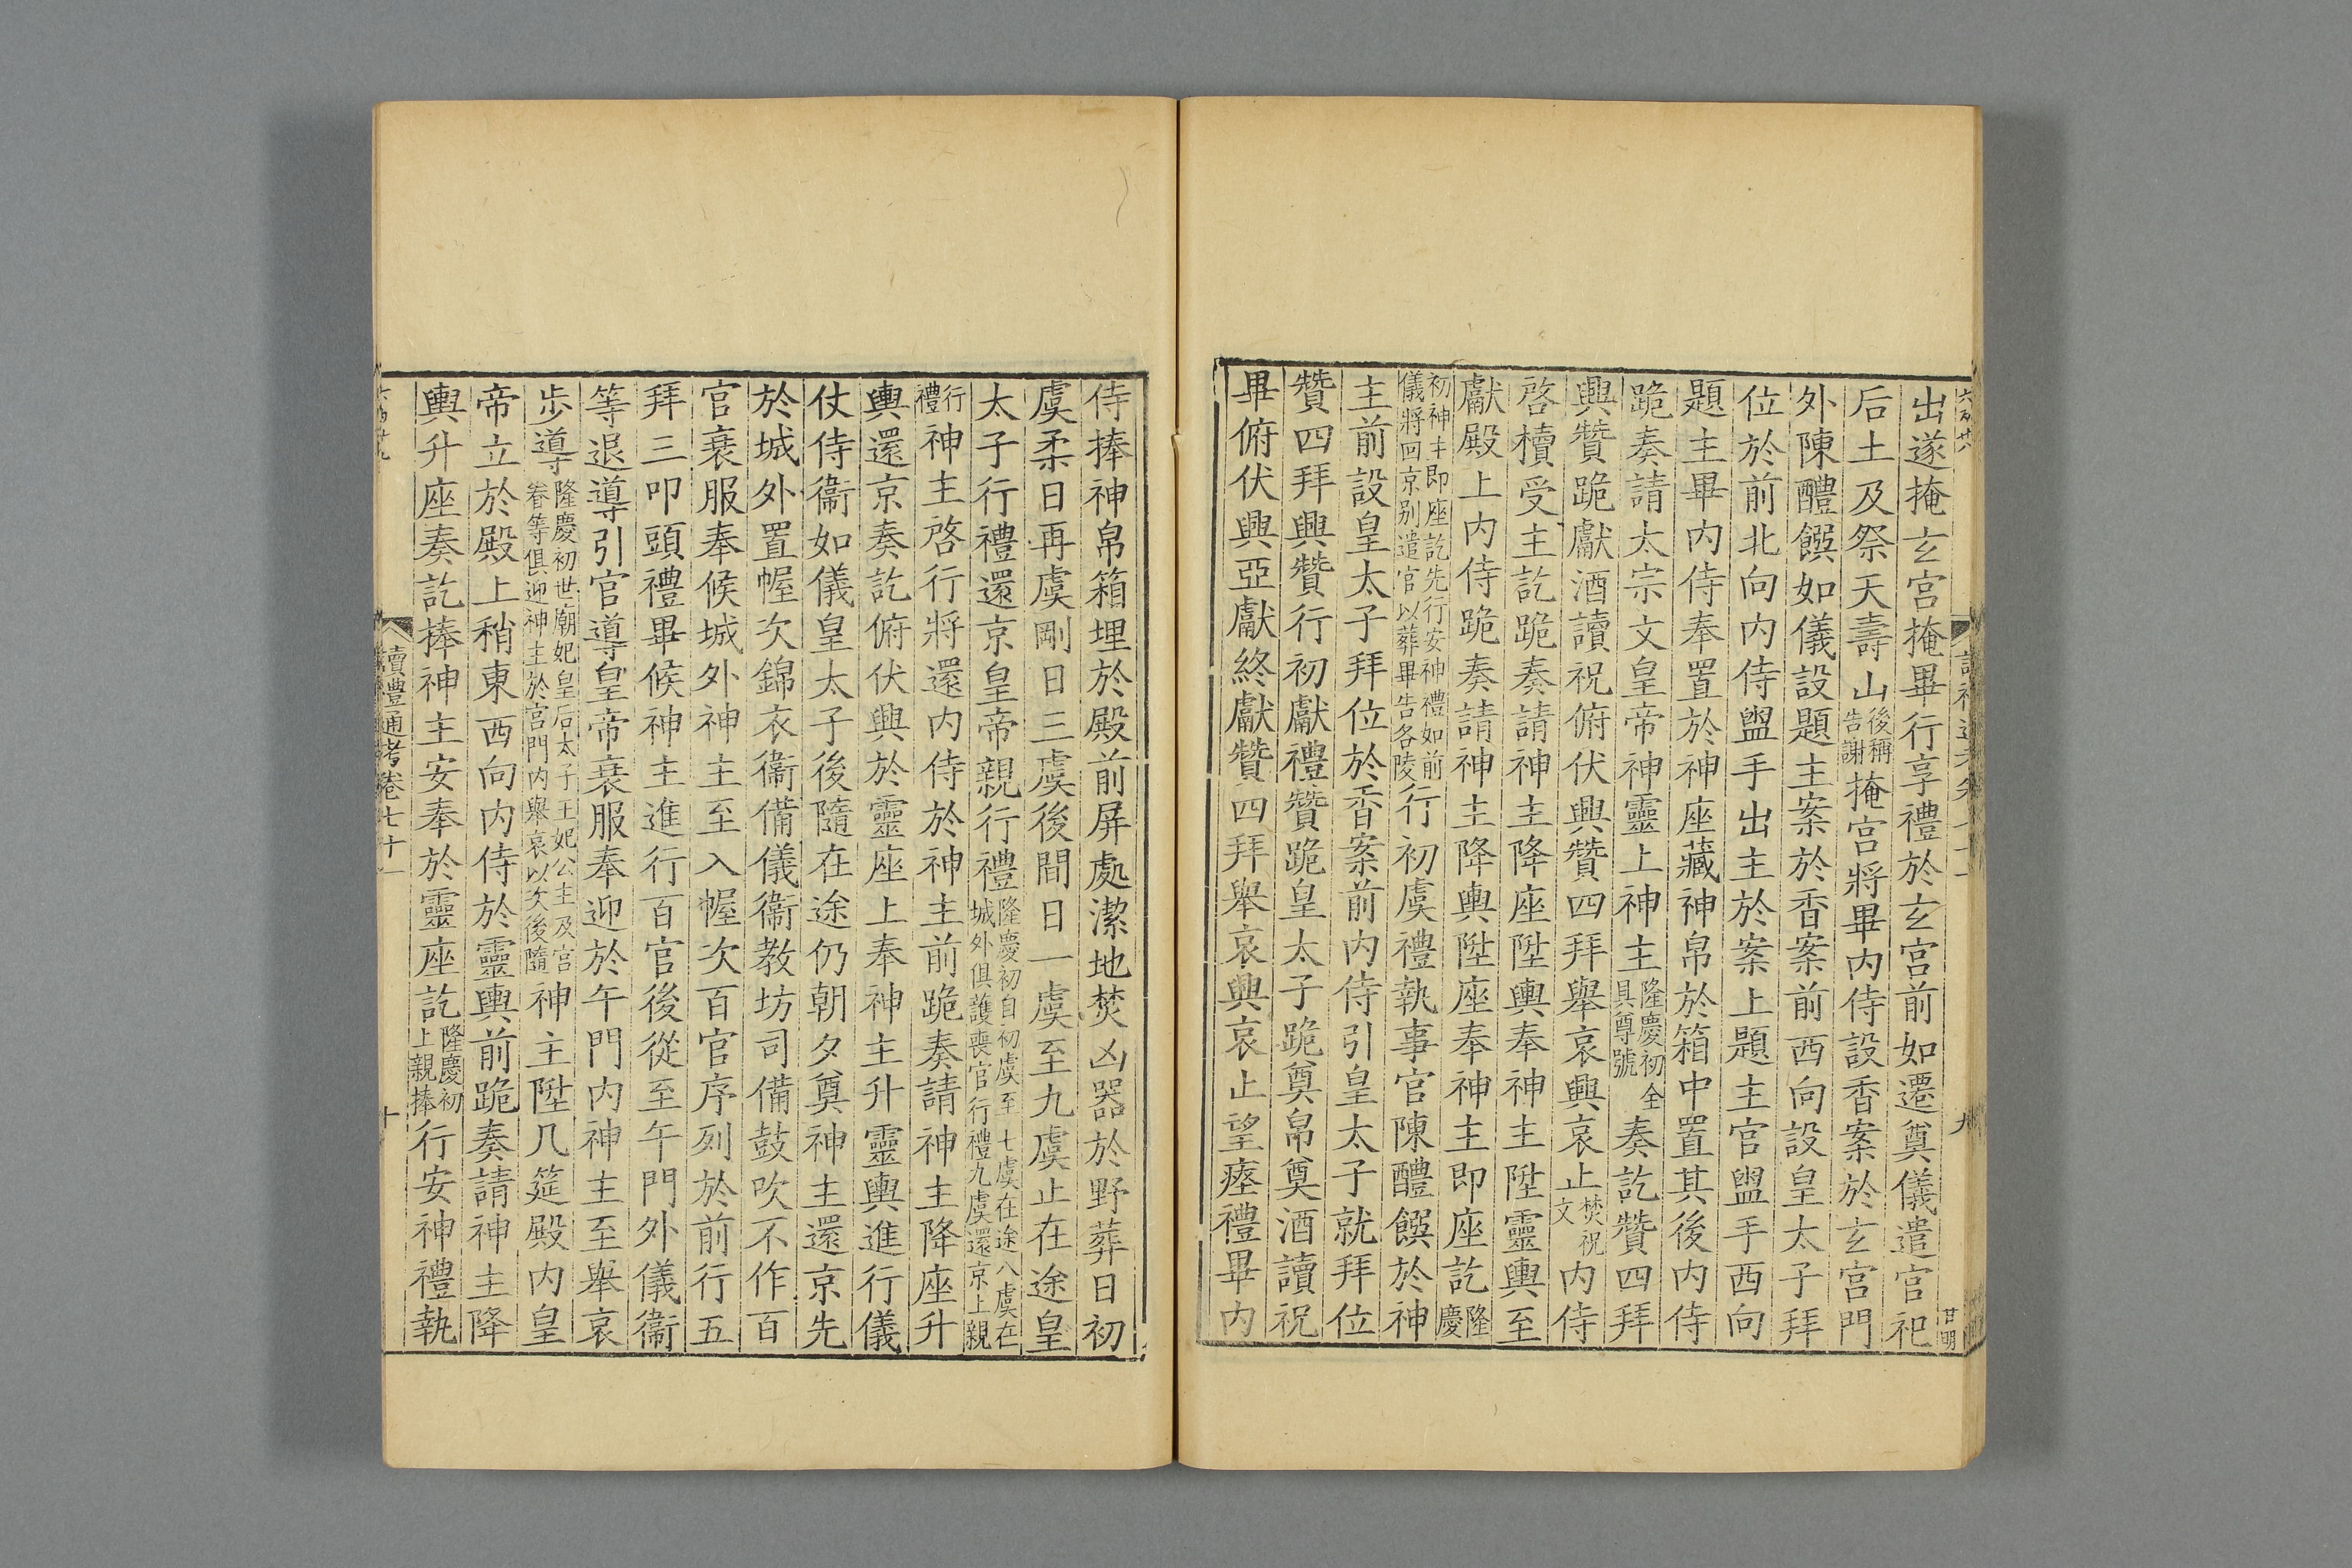 出遂掩玄宮掩畢行享禮於玄宮前如遷奠儀遣官祀
后土及祭天壽山後稱告謝掩宮將畢內侍設香案於玄宮門
外陳醴饌如儀設題主案於香案前西向設皇太子拜
位於前北向內侍盥手出主於案上題主官盥手西向
題主畢內侍奉置於神座藏神帛於箱中置其後內侍
跪奏請太宗文皇帝神靈上神主隆慶初全具尊號奏訖贊四拜
興贊跪獻酒讀祝俯伏興贊四拜舉哀興哀止焚祝文內侍
啓櫝受主訖跪奏請神主降座陞輿奉神主陞靈輿至
獻殿上內侍跪奏請神主降輿陞座奉神主即座訖隆慶
初神主即座訖先行安神禮如前儀將回京別遣官以葬畢告各陵行初虞禮執事官陳醴饌於神
主前設皇太子拜位於香案前內侍引皇太子就拜位
贊四拜興贊行初獻禮贊跪皇太子跪奠帛奠酒讀祝
畢俯伏興亞獻終獻贊四拜舉哀興哀止望瘞禮畢內
九
甘明
侍捧神帛箱埋於殿前屏處潔地焚凶器於野葬日初
虞柔日再虞剛日三虞後間日一虞至九虞止在途皇
太子行禮還京皇帝親行禮隆慶初自初虞至七虞在途八虞在城外俱護喪官行禮九虞還京上親
行禮神主啓行將還內侍於神主前跪奏請神主降座升
輿還京奏訖俯伏興於靈座上奉神主升靈輿進行儀
仗侍衞如儀皇太子後隨在途仍朝夕奠神主還京先
於城外置幄次錦衣衞備儀衞教坊司備鼓吹不作百
官衰服奉候城外神主至入幄次百官序列於前行五
拜三叩頭禮畢候神主進行百官後從至午門外儀衞
等退導引官導皇帝衰服奉迎於午門內神主至舉哀
步導隆慶初世廟妃皇后太子王妃公主及宮眷等俱迎神主於宮門內舉哀以次後隨神主陞几筵殿內皇
帝立於殿上稍東西向內侍於靈輿前跪奏請神主降
輿升座奏訖捧神主安奉於靈座訖隆慶初上親捧行安神禮執
讀禮通考卷七十一
十